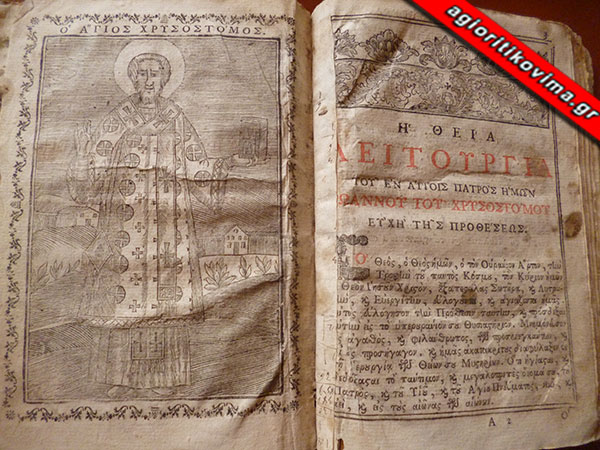 Ο ΑΓΙΟΣ ΧΡΥΣΟΣΤΟΜΟΣ.
agioritikovima.gr
Η ΘΕΙΑ
ΛΕΙΤΟΥΡΓΙΑ
ΤΟΥ ΕΝ ΑΓΙΟΙΣ ΠΑΤΡΟΣ ΗΜΩΝ
ΙΩΑΝΝΟΥ ΤΟΥ ΧΡΥΣΟΣΤΟΜΟΥ
ΕΥΧΗ ΤΗΣ ΠΡΟΘΕΣΕΩΣ.
Ὁ Θεὸς, ὁ Θεὸς ἡμῶν, ὁ τὸν Οὐράνιον Ἄρτον, τὴν
Τροφὴν τοῦ παντὸς Κόσμου, τὸν Κύριον ἡμῶν
Θεὸν Ἰησοῦν Χριστὸν, ἐξαποστείλας Σωτῆρα, ϗ Λυτρω
ϗ Εὐεργέτην, εὐλογοῦντα, ϗ ἁγιάζοντα ἡμᾶς
εὐλόγησον τὴν Πρόθεσιν ταύτην, ϗ πρόσδεξαι
εἰς τὸ ὑπερουράνιόν σου Θυσιαστήριον. Μνημόνευσον
ἀγαθὸς, ϗ φιλάνθρωπος, τῶν προσενεγκάντων, ϗ
προσήγαγον, ϗ ἡμᾶς ἀκατακρίτους διαφύλαξον
ἱερουργίᾳ τῶν Θείων σου Μυστηρίων. Ὅτι ἡγίασται, ϗ
τὸ πάντιμον, ϗ μεγαλοπρεπὲς ὄνομά σου,
Πατρὸς, ϗ τοῦ Υἱοῦ, ϗ τοῦ Ἁγίου Πνεύματος, νῦν, ϗ
ϗ εἰς τοὺς αἰῶνας τῶν αἰώνων.
Α 2 Ο